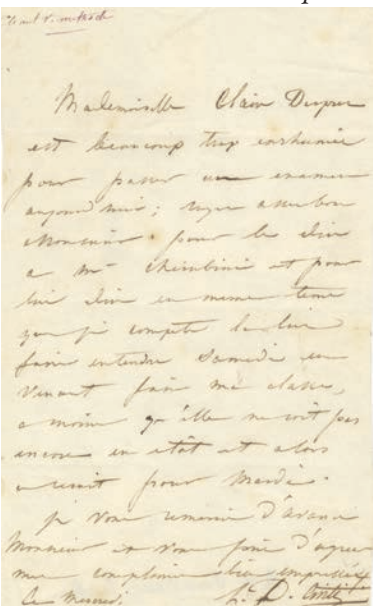 Mademoiselle Claire
est beaucoup trop enrhumée
pour passer un examen
aujourd'hui; soyez assez bon
Monsieur pour le dire
a Mr Cherubini et pour
lui dire en meme tems
que je compte la lui
faire entendre Samedi en
venant faire ma classe,
a moins qu'elle ne soit pas
encore en état et alors
ce seroit pour Mardi.
je vous remercie d'avance
Monsieur et vous prie d'agréer
mes complimens bien empressés
Ce Mercredi. L. D.